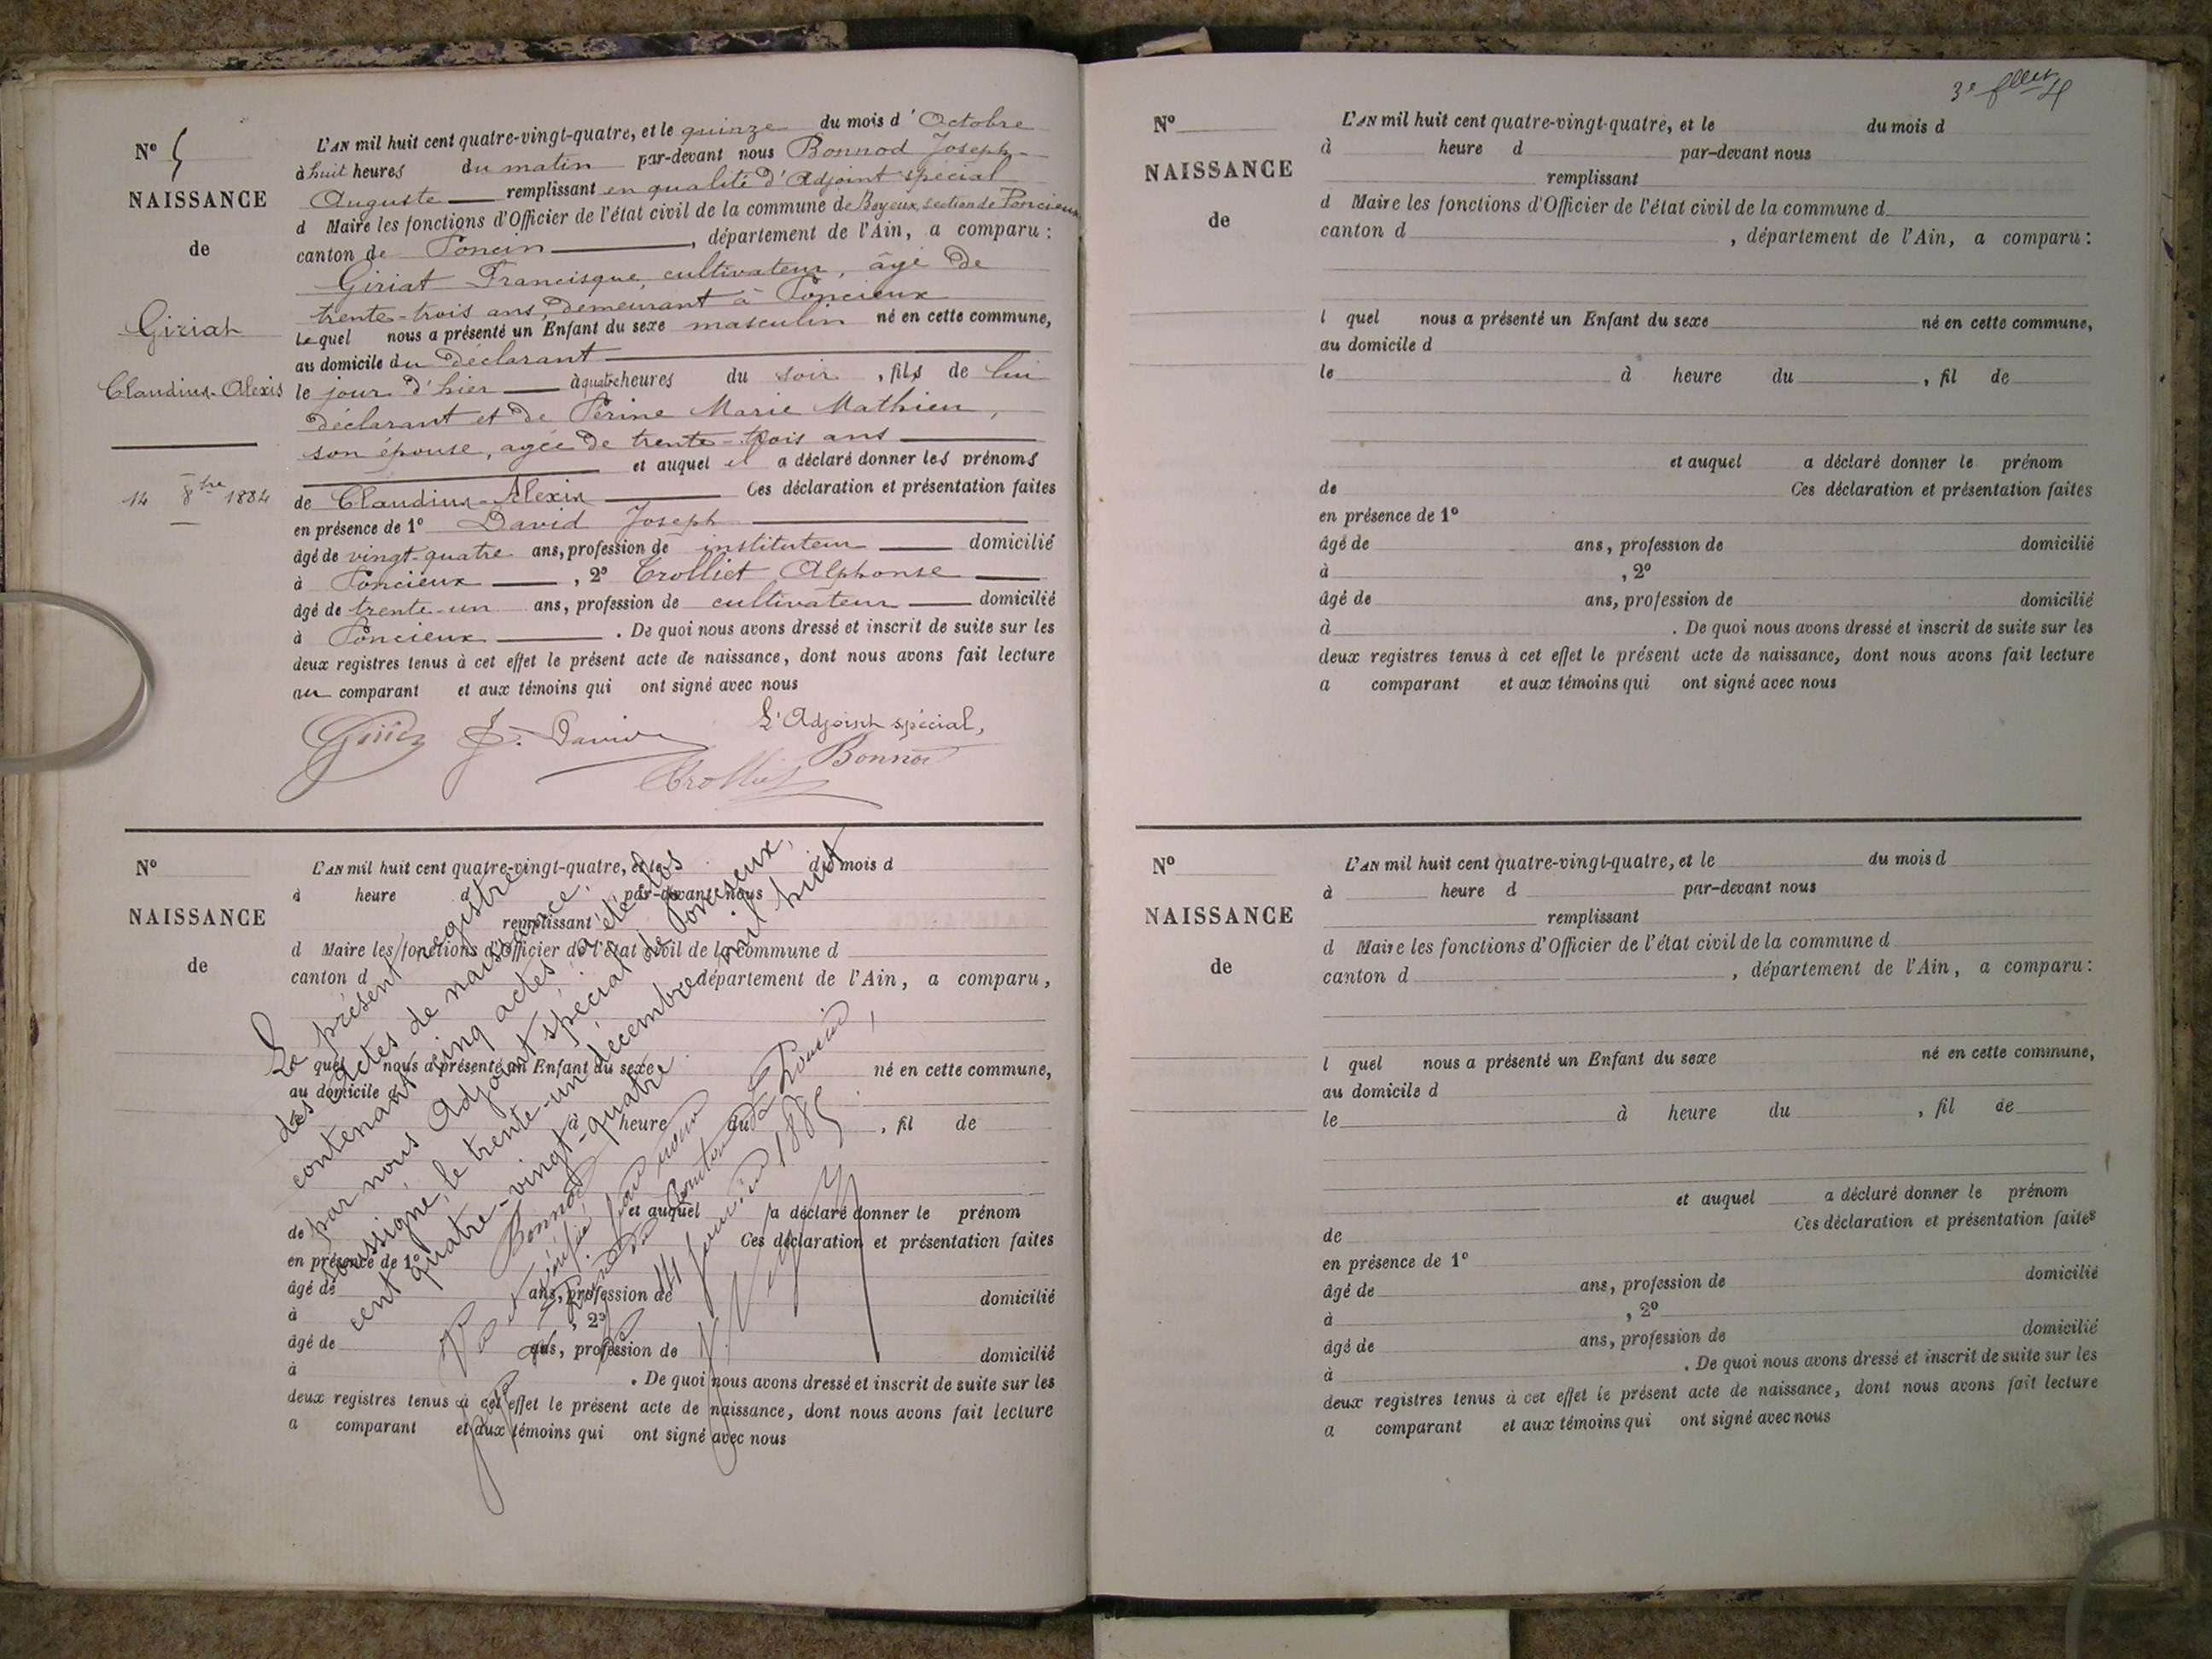 N° 5
NAISSANCE
de
Giriat
Claudius-Alexis
14 8bre 1884
L'AN mil huit cent quatre-vingt-quatre, et le quinze du mois d'Octobre
à huit heures du matin par-devant nous Bonnod Joseph-
Auguste remplissant en qualité d'Adjoint spécial
d Maire les fonctions d'Officier de l'état civil de la commune de Boyeux, section de Poncieux
canton de Poncin, département de l'Ain, a comparu :
Giriat Francisque, cultivateur, âgé de
trente-trois ans, demeurant à Poncieux
Lequel nous a présenté un Enfant du sexe masculin né en cette commune,
au domicile du déclarant
le jour d'hier à quatre heures du soir, fils de lui
déclarant et de Périne Marie Mathieu,
son épouse, agée de trente-trois ans
et auquel il a déclaré donner les prénoms
de Claudius-Alexis Ces déclaration et présentation faites
en présence de 1° David Joseph
âgé de vingt-quatre ans, profession de instituteur domicilié
à Poncieux, 2° Trolliet Alphonse
âgé de trente-un ans, profession de cultivateur domicilié
à Poncieux. De quoi nous avons dressé et inscrit de suite sur les
deux registres tenus à cet effet le présent acte de naissance, dont nous avons fait lecture
au comparant et aux témoins qui ont signé avec nous
J. David L'Adjoint spécial,
Bonnod
Trolliet
N°
NAISSANCE
de
L'AN mil huit cent quatre-vingt-quatre, et le du mois d
à heure d par-devant nous
remplissant
d Maire les fonctions d'Officier de l'état civil de la commune d
canton d département de l'Ain, a comparu,
l quel nous a présenté un Enfant du sexe né en cette commune,
au domicile d
à heure du , fil de
et auquel a déclaré donner le prénom
de Ces déclaration et présentation faites
en présence de 1°
âgé de ans, profession de domicilié
à , 2°
âgé de ans, profession de domicilié
à . De quoi nous avons dressé et inscrit de suite sur les
deux registres tenus à cet effet le présent acte de naissance, dont nous avons fait lecture
a comparant et aux témoins qui ont signé avec nous
Le présent registre
des actes de naissance,
contenant cinq actes, a été clos
par nous Adjoint spécial de Poncieux,
soussigné, le trente-un décembre mil huit
cent quatre-vingt-quatre.
Bonnod
Vérifié par nous
14 janvier 1885
3e
N°
NAISSANCE
de
L'AN mil huit cent quatre-vingt-quatre, et le du mois d
à heure d par-devant nous
remplissant
d Maire les fonctions d'Officier de l'état civil de la commune d
canton d , département de l'Ain, a comparu :
l quel nous a présenté un Enfant du sexe né en cette commune,
au domicile d
le à heure du , fil de
et auquel a déclaré donner le prénom
de Ces déclaration et présentation faites
en présence de 1°
âgé de ans, profession de domicilié
à , 2°
âgé de ans, profession de domicilié
à . De quoi nous avons dressé et inscrit de suite sur les
deux registres tenus à cet effet le présent acte de naissance, dont nous avons fait lecture
a comparant et aux témoins qui ont signé avec nous
N°
NAISSANCE
de
L'AN mil huit cent quatre-vingt-quatre, et le du mois d
à heure d par-devant nous
remplissant
d Maire les fonctions d'Officier de l'état civil de la commune d
canton d , département de l'Ain, a comparu :
l quel nous a présenté un Enfant du sexe né en cette commune,
au domicile d
le à heure du , fil de
et auquel a déclaré donner le prénom
de Ces déclaration et présentation faites
en présence de 1°
âgé de ans, profession de domicilié
à , 2°
âgé de ans, profession de domicilié
à . De quoi nous avons dressé et inscrit de suite sur les
deux registres tenus à cet effet le présent acte de naissance, dont nous avons fait lecture
a comparant et aux témoins qui ont signé avec nous